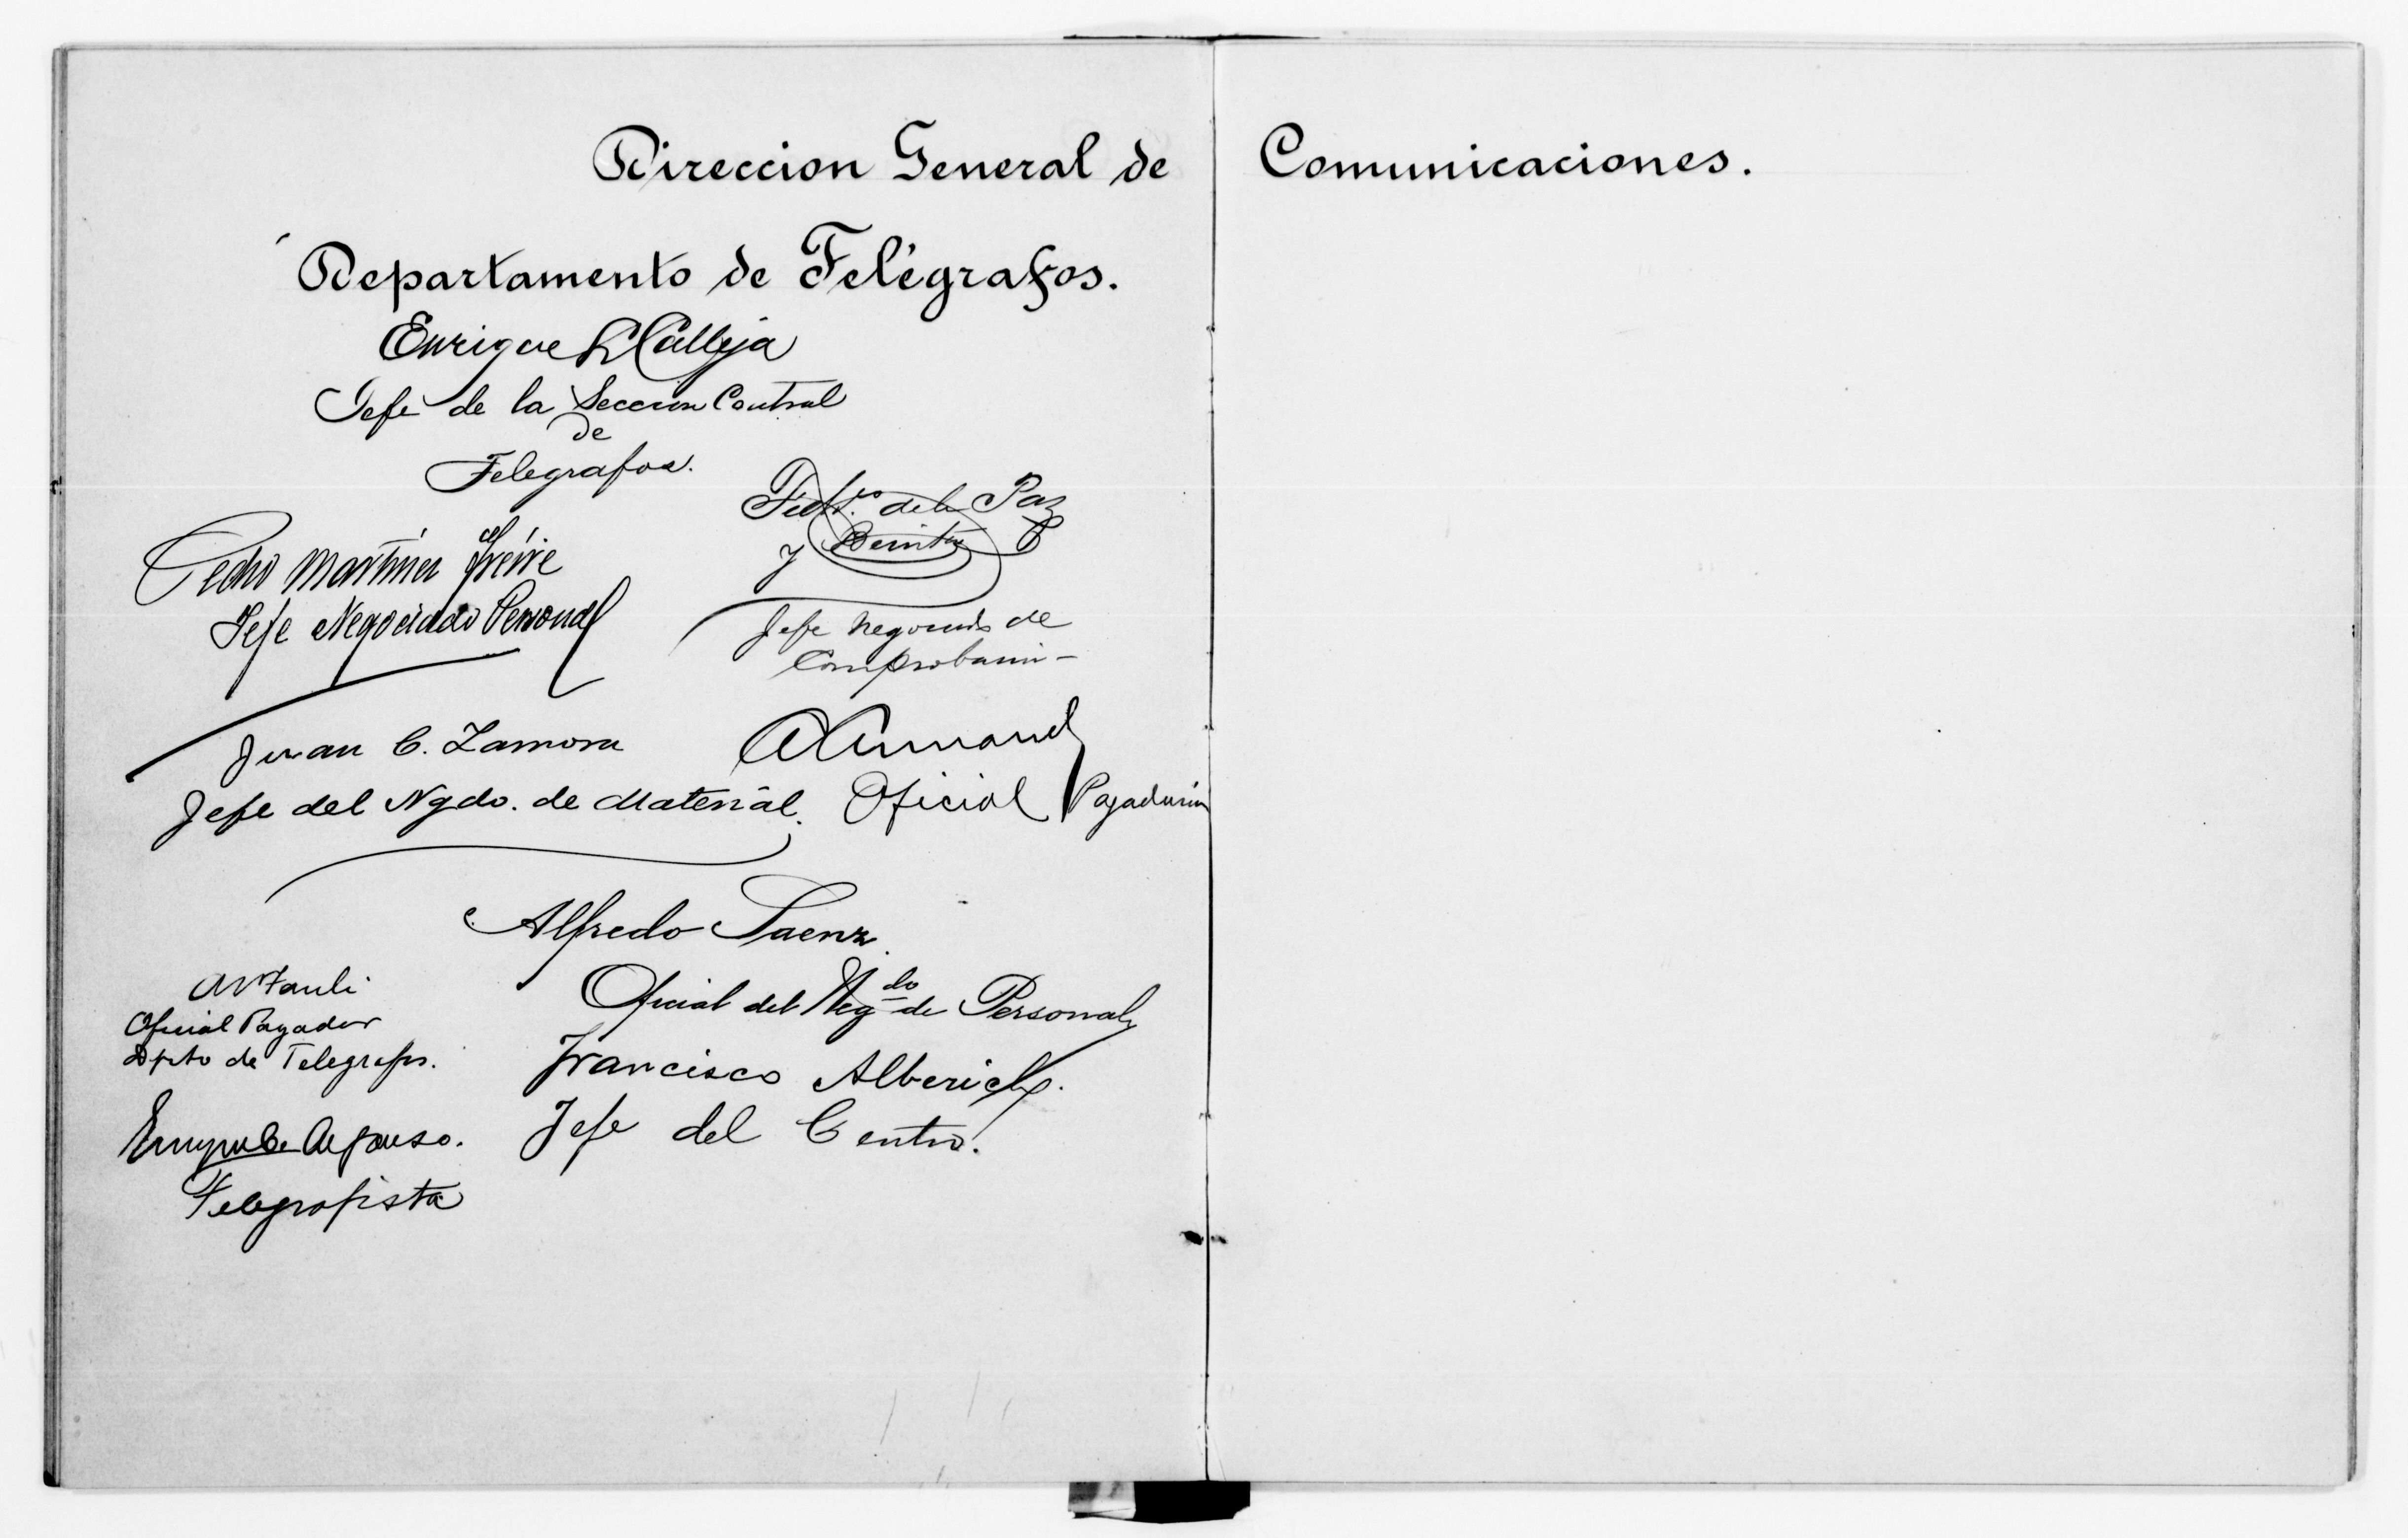 Direccion General de Comunicaciones.
Departamento de Telégrafos.
Enrique Calleja
Jefe de la Seccion Central
de
Telegrafos.
Pedro Martinez Freire
Jefe Negociado Personal
de la Paz
y Benitez
Jefe Negociado de
Comprobacion
Juan C. Zamora
Jefe del Ngdo. de Material.
Oficial Pagaduria
Alfredo Saenz
Oficial del Negdo de Personal
Oficial Pagador
Dpto de Telegrafos.
Francisco Alberich.
Jefe del Centro.
Enrique Alfonso.
Telegrafista